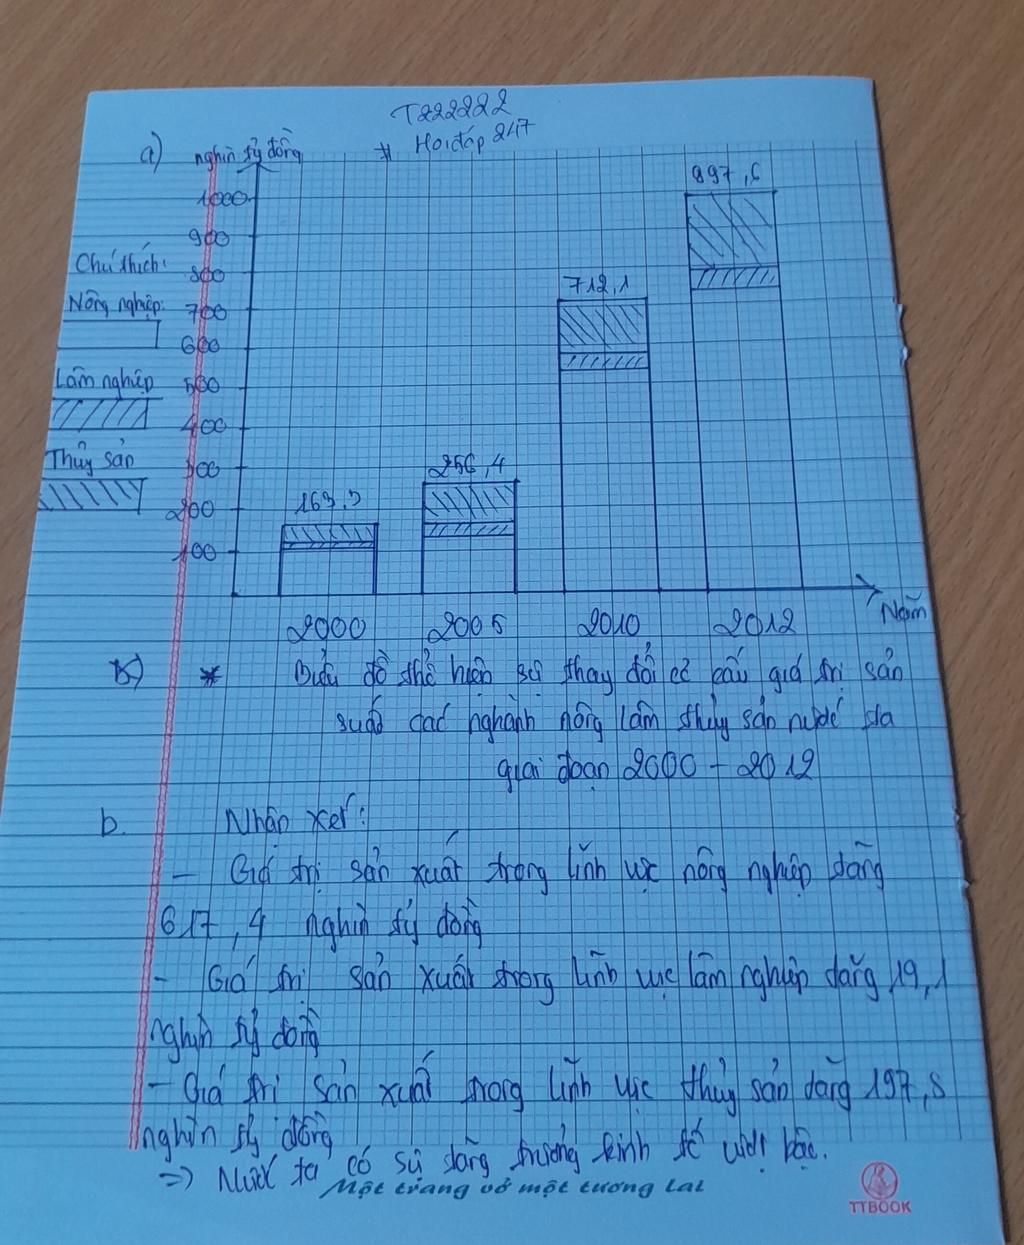 T222222
* Hoiđáp 247
a) nghìn tỷ đồng
1000
900
800
700
600
500
400
300
200
100
Chú thích:
Nông nghiệp:
Lâm nghiệp
Thủy sản
163,3
256,4
712,1
897,6
2000 2005 2010 2012 Năm
* Biểu đồ thể hiện sự thay đổi cơ cấu giá trị sản
suất các nghành nông lâm thủy sản nước ta
giai đoạn 2000 - 2012
b. Nhận xét:
- Giá trị sản xuất trong lĩnh vực nông nghiệp tăng
617,4 nghìn tỷ đồng
- Giá trị sản xuất trong lĩnh vực lâm nghiệp tăng 19,1
nghìn tỷ đồng
- Giá trị sản xuất trong lĩnh vực thủy sản tăng 197,8
nghìn tỷ đồng
=> Nước ta có sự tăng trưởng kinh tế vượt bậc.
Một trang vở một tương lai
TTBOOK